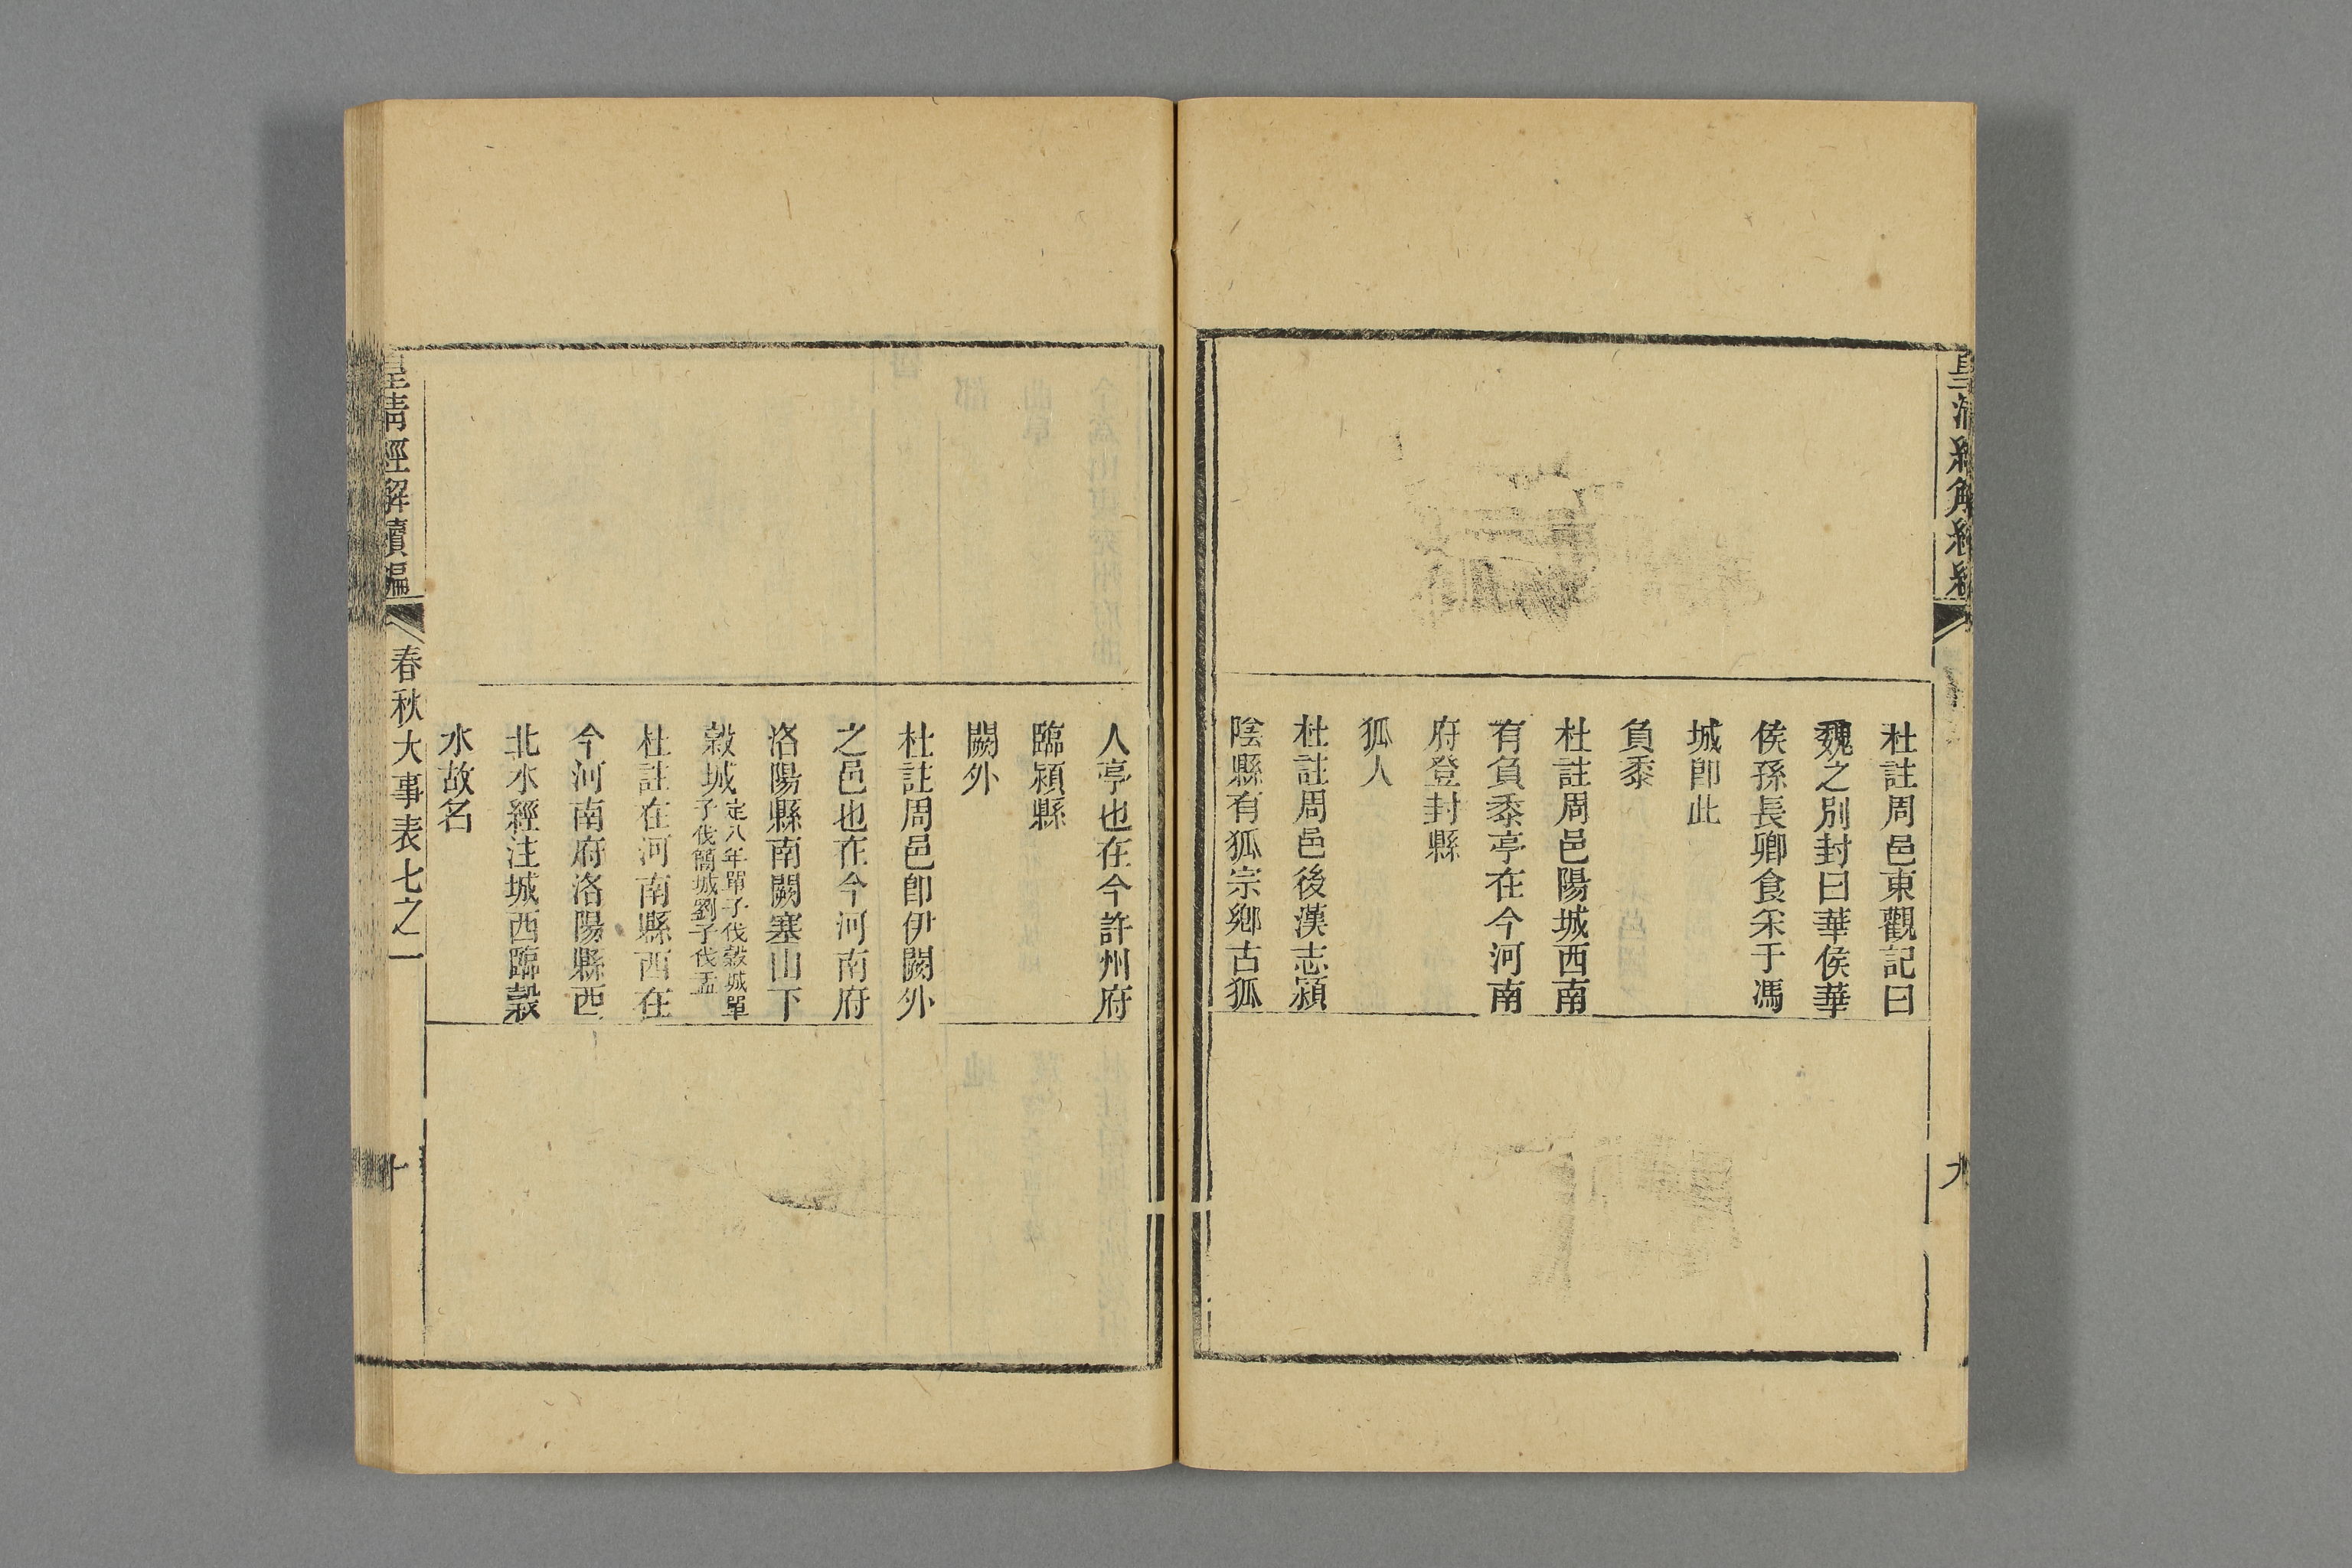 杜註周邑東觀記曰
魏之別封曰華侯華
侯孫長卿食采于馮
城卽此
負黍
杜註周邑陽城西南
有負黍亭在今河南
府登封縣
狐人
杜註周邑後漢志潁
陰縣有狐宗鄉古狐
人亭也在今許州府
臨潁縣
闕外
杜註周邑卽伊闕外
之邑也在今河南府
洛陽縣南闕塞山下
穀城定八年單子伐穀城單
子伐簡城劉子伐盂
杜註在河南縣西在
今河南府洛陽縣西
北水經注城西臨穀
水故名
皇清經解續編
春秋大事表七之一
十